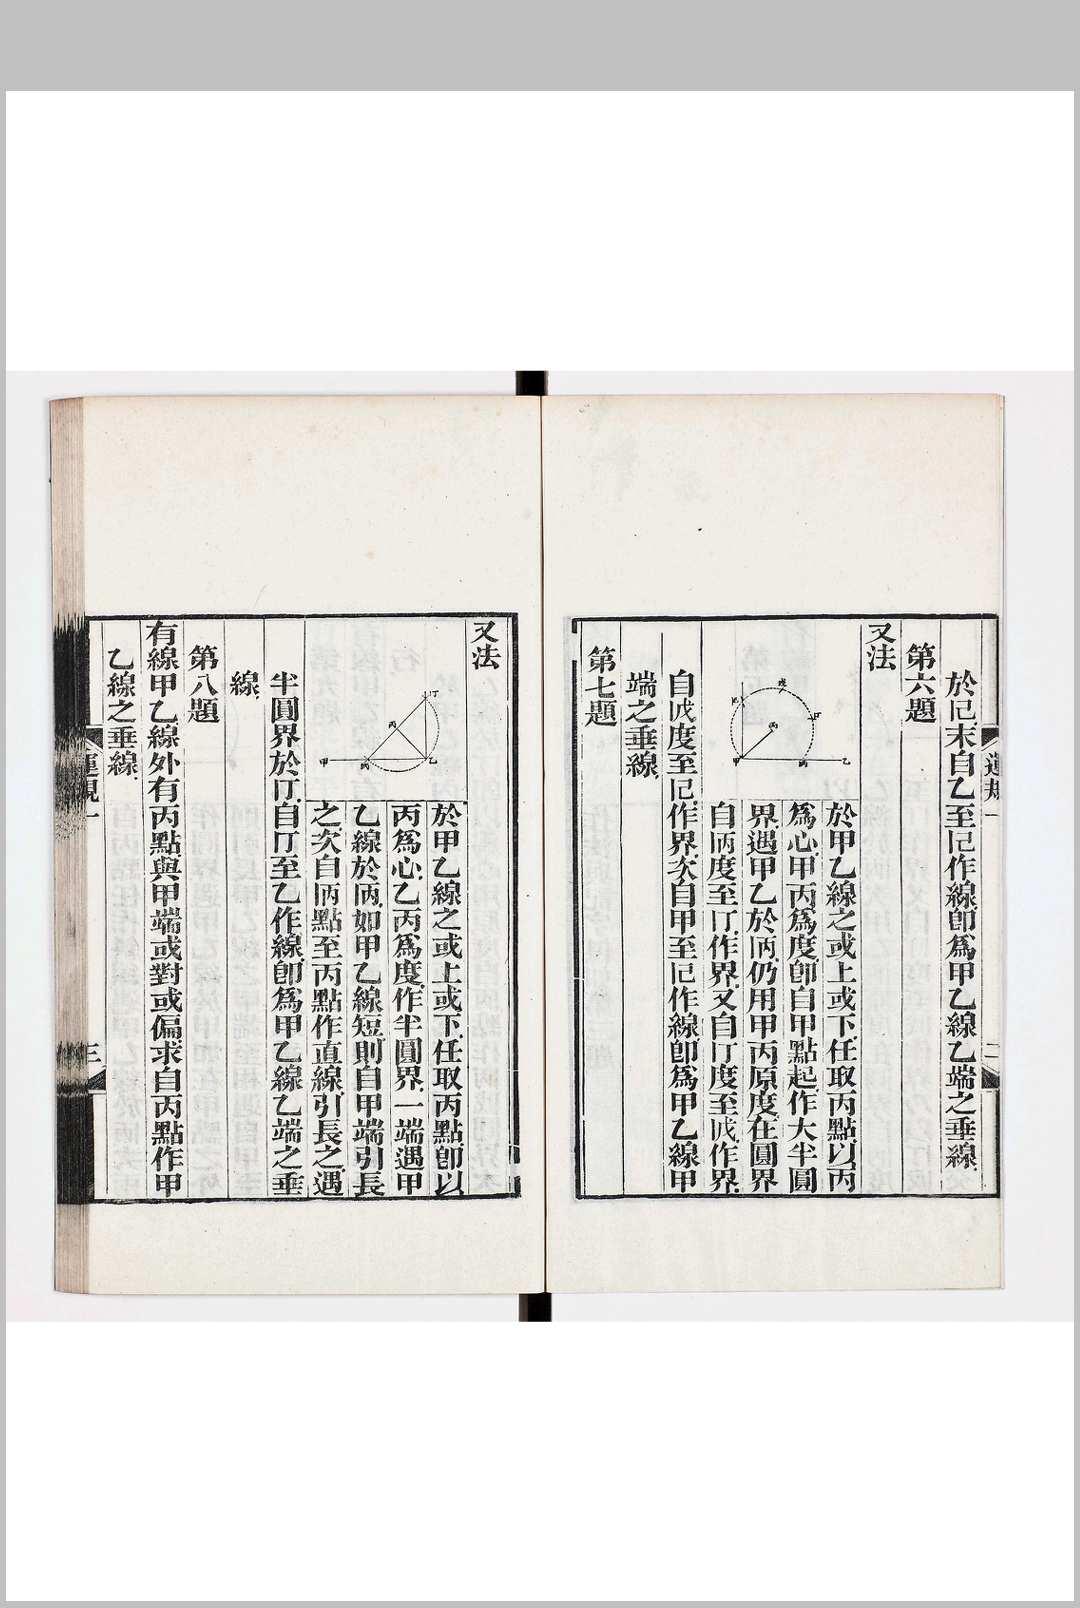 於己末自乙至己作線即爲甲乙線乙端之垂線
第六題
又法
於甲乙線之或上或下任取丙點以丙
爲心甲丙爲度即自甲點起作大半圓
界遇甲乙於𠰳仍用甲丙原度在圓界
自𠰳度至叮作界又自叮度至戊作界
自戊度至己作界次自甲至己作線即爲甲乙線甲
端之垂線
第七題
運規一
二
又法
於甲乙線之或上或下任取丙點即以
丙爲心乙丙爲度作半圓界一端遇甲
乙線於𠰳如甲乙線短則自甲端引長
之次自𠰳點至丙點作直線引長之遇
半圓界於叮自叮至乙作線即爲甲乙線乙端之垂
線
第八題
有線甲乙線外有丙點與甲端或對或偏求自丙點作甲
乙線之垂線
運規一
三